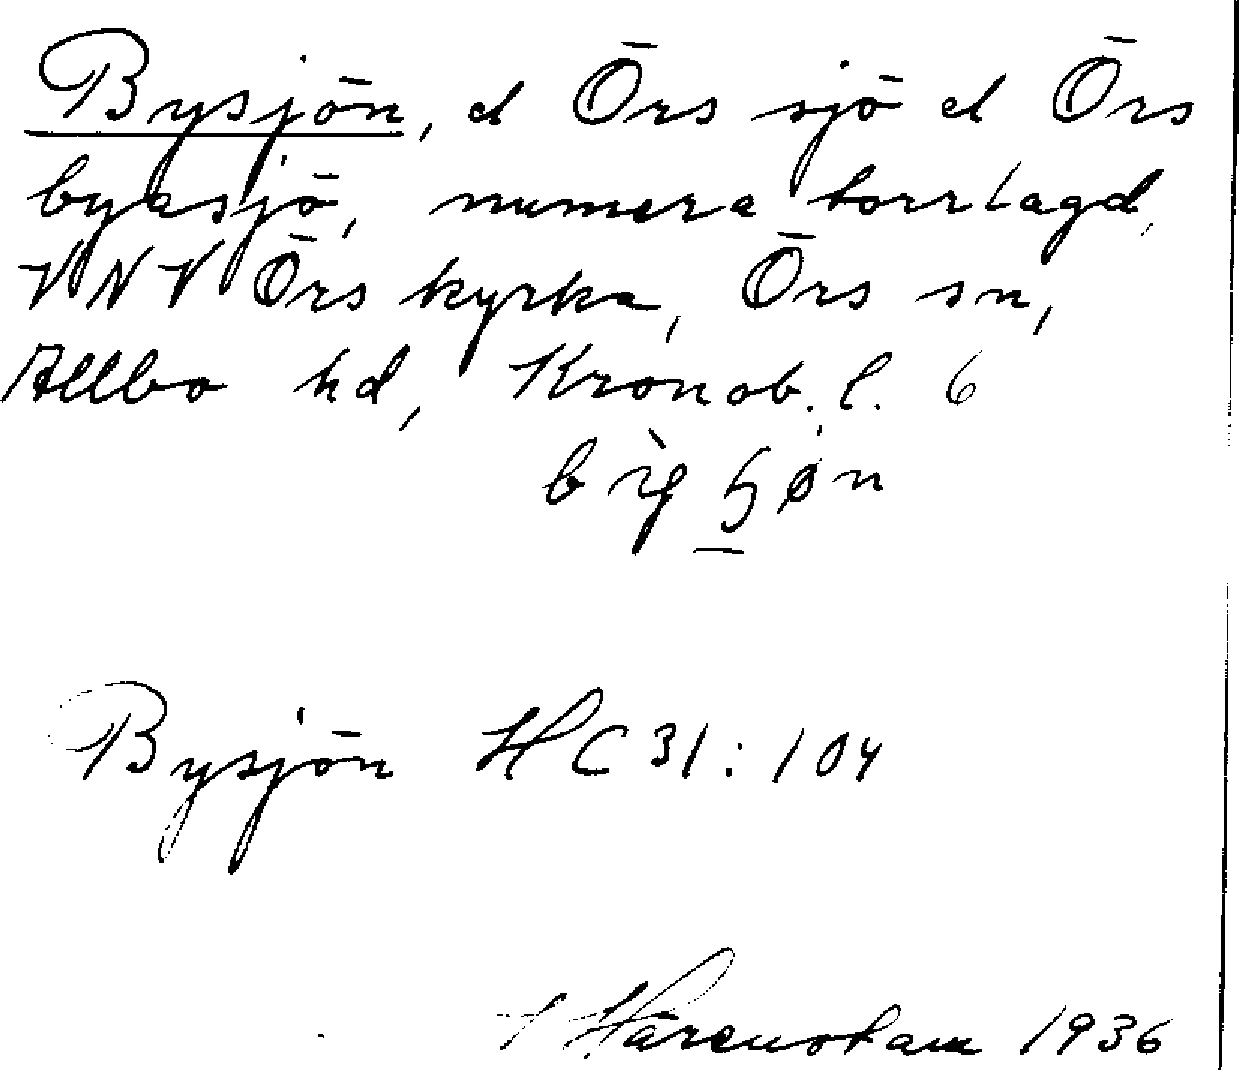 Bysjön, el Örs sjö el Örs
byasjö, numera torrlagd,
VNV Örs kyrka, Örs sn,
Allbo hd, Kronob. l. 6
Bysjön HC 31:104
Härenstam 1936